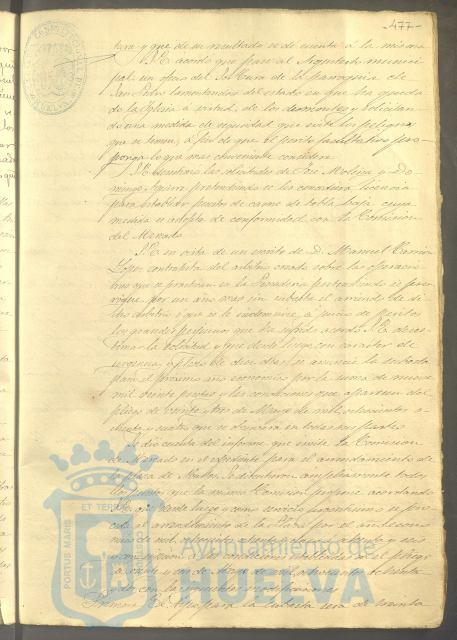 -477-
tura y que de su resultado se dé cuenta á la misma
S. E. acordó que pase al Arquitecto munici-
pal un oficio del Sor. Cura de la parroquia de
San Pedro lamentandose del estado en que ha queda-
do la Iglesia á virtud de los derrumbes y solicitan-
do una medida de seguridad que evite los peligros
que se temen, á fin de que el perito facultativo pro-
ponga lo que mas conveniente considere
S. E. las solicitudes de José Molina y Do-
mingo pretendiendo se les conceda licencia
para establecer puestos de carne de tabla baja cuya
medida se adopta de conformidad con la Comision
del Mercado
S. E. en vista de un escrito de D. Manuel Carrion
Lopez contratista del arbitrio creado sobre las operacio-
nes que se practican en la Pescaderia pretendiendo se pror-
rogue por un año mas sin subasta el arriendo de di-
cho arbitrio ó que se le indemnice á juicio de peritos
los grandes perjuicios que ha sufrido acordó S. E. deses-
timar la solicitud y que desde luego con caracter de
urgencia y plazo de diez dias se anuncie la subasta
para el proximo año economico por la suma de nueve
mil veinte pesetas y las condiciones que aparecen del
pliego de veinte y tres de Mayo de mil ochocientos o-
chenta y cuatro que se en todas sus partes
Se dió cuenta del informe que emite la Comision
de Mercado en el expediente para el arrendamiento de
la plaza de Abastos
que la misma Comision propone acordando
desde luego y como servicio se pro-
ceda al arrendamiento de la Plaza por el año econo-
mico de mil ochocientos ochenta y cinco y seis
y del pliego
de veinte y de Mayo de mil ochocientos ochenta
con las modificaciones
Primera. El tipo para la subasta será de treinta
PORTUS MARIS ET TERRAE
Ayuntamiento de
HUELVA